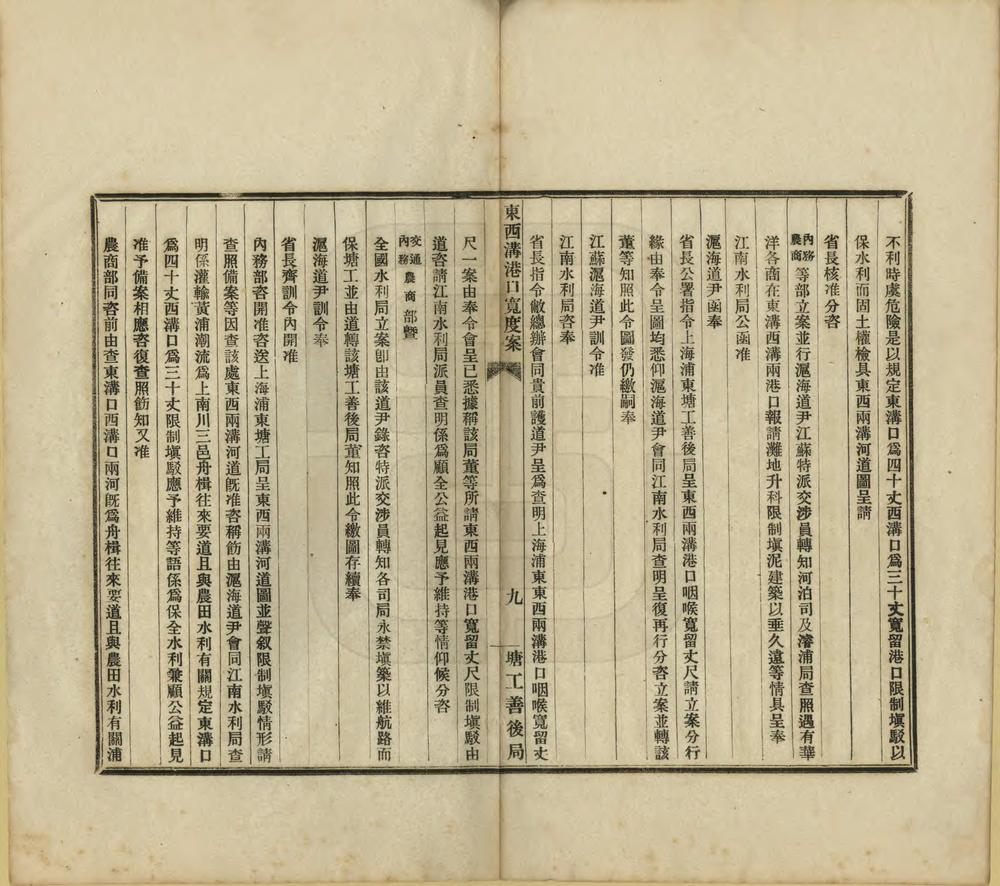 不利時虞危險是以規定東溝口爲四十丈西溝口爲三十丈寬留港口限制塡駁以
保水利而固土權檢具東西兩溝河道圖呈請
省長核准分咨
內務農商等部立案並行滬海道尹江蘇特派交涉員轉知河泊司及濬浦局查照遇有華
洋各商在東溝西溝兩港口報請灘地升科限制塡泥建築以垂久遠等情具呈奉
江南水利局公函准
滬海道尹函奉
省長公署指令上海浦東塘工善後局呈東西兩溝港口咽喉寬留丈尺請立案分行
緣由奉令呈圖均悉仰滬海道尹會同江南水利局查明呈復再行分咨立案並轉該
董等知照此令圖發仍繳嗣奉
江蘇滬海道尹訓令准
江南水利局咨奉
省長指令敝總辦會同貴前護道尹呈爲查明上海浦東東西兩溝港口咽喉寬留丈
東西溝港口寬度案
九
塘工善後局
尺一案由奉令會呈已悉據稱該局董等所請東西兩溝港口寬留丈尺限制塡駁由
道咨請江南水利局派員查明係爲顧全公益起見應予維持等情仰候分咨
交通內務農商部暨
全國水利局立案卽由該道尹錄咨特派交涉員轉知各司局永禁塡築以維航路而
保塘工並由道轉該塘工善後局董知照此令繳圖存續奉
滬海道尹訓令奉
省長齊訓令內開准
內務部咨開准咨送上海浦東塘工局呈東西兩溝河道圖並聲叙限制塡駁情形請
查照備案等因查該處東西兩溝河道旣准咨稱飭由滬海道尹會同江南水利局查
明係灌輸黃浦潮流爲上南川三邑舟楫往來要道且與農田水利有關規定東溝口
爲四十丈西溝口爲三十丈限制塡駁應予維持等語係爲保全水利兼顧公益起見
准予備案相應咨復查照飭知又准
農商部同咨前由查東溝口西溝口兩河旣爲舟楫往來要道且與農田水利有關浦